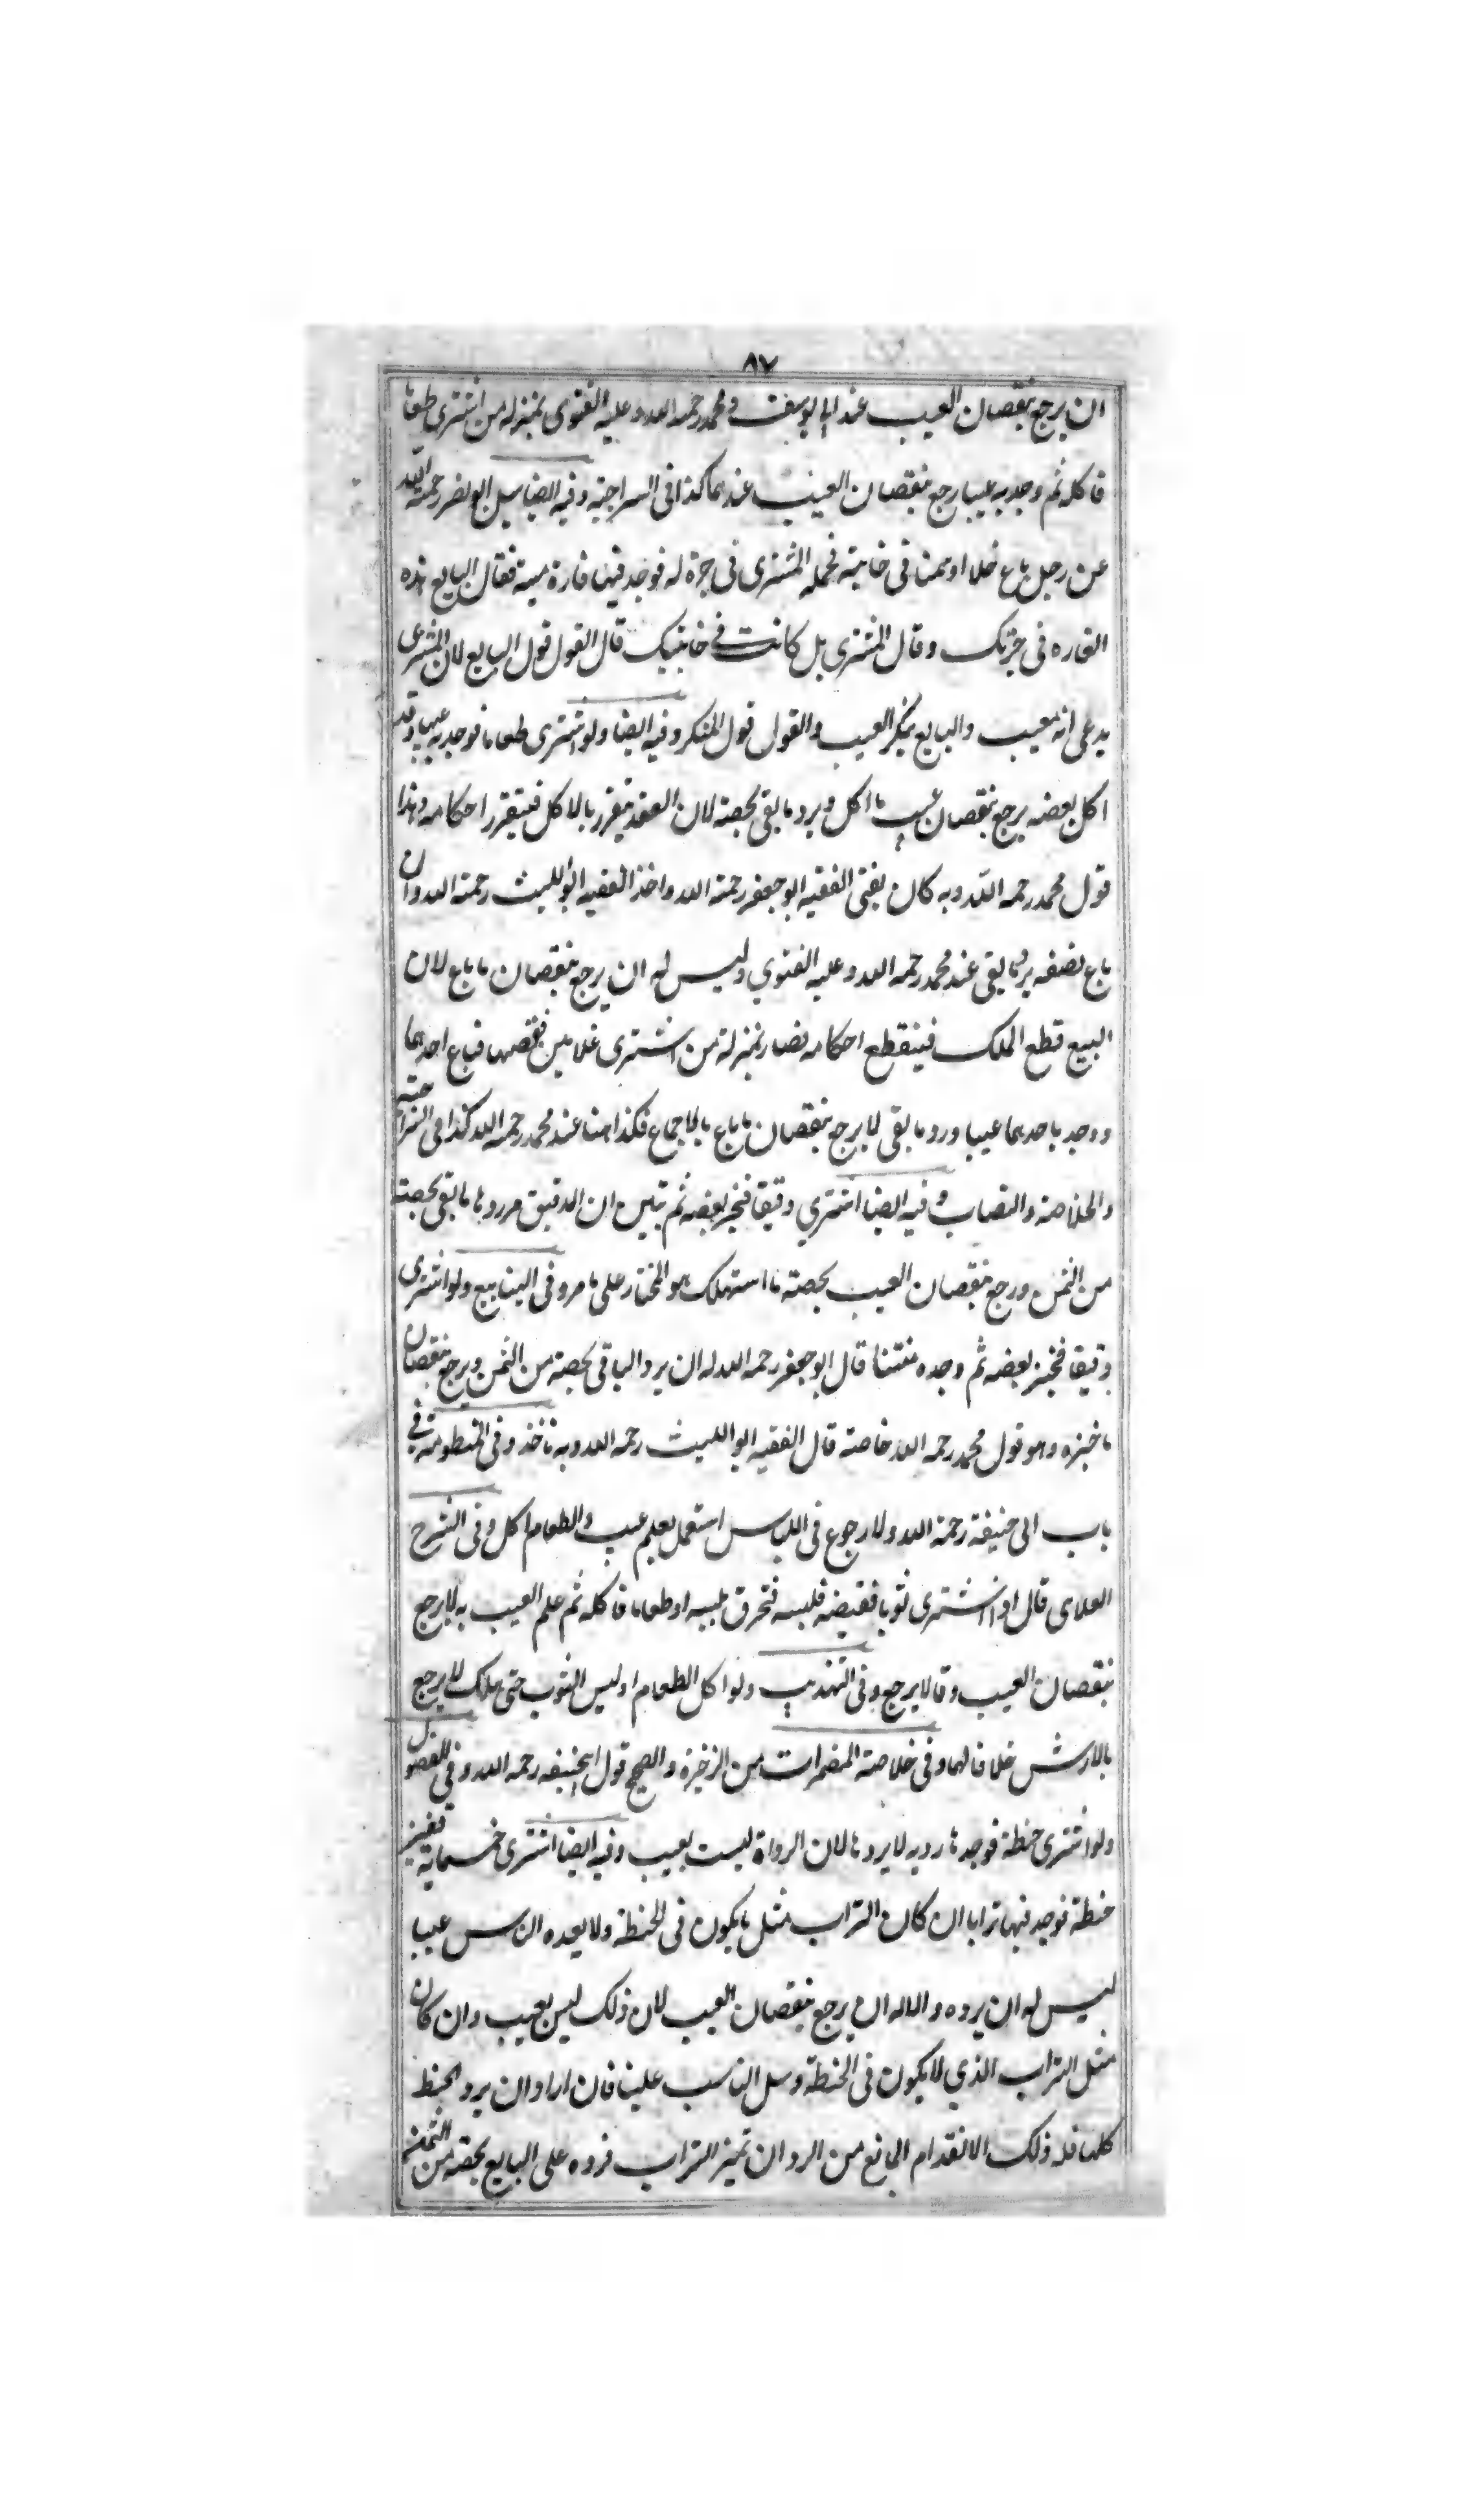 ٨٧
ان يرجع بنقصان العيب عند ابا يوسف و محمد رحمه الله و عليه الفتوى بمنزله من اشترى طعاما
فاكله ثم وجد به عيبا رجع بنقصان العيب عندهما كذا فى السراجية وفيه ايضا سيل ابو نصر رحمه الله
عن رجل باع خلا او سمنا فى خابية فحمله المشترى فى جرة له فوجد فيها فارة ميتة فقال البايع هذه
الفاره فى جرتك وقال المشترى بل كانت في خابيتك قال القول قول البايع لان المشترى
يدعى انه معيب والبايع ينكر العيب والقول قول المنكر وفيه ايضا ولو اشترى طعاما فوجد به عيبا وقد
اكل بعضه يرجع بنقصان عيب ما اكل ويرد ما بقى بحصته لان العقد تيقرر بالاكل فيتقرر احكامه وهذا
قول محمد رحمه الله وبه كان يفتى الفقيه ابو جعفر رحمه الله واخذ الفقيه ابو الليث رحمة الله وان
باع نصفه يرد ما بقى عند محمد رحمه الله وعليه الفتوي وليس له ان يرجع بنقصان ما باع لان
البيع قطع الملك فينقطع احكامه فصار بمنزلة من اشترى غلامين فقبضهما فباع احدهما
ووجد باحدهما عيبا ورد ما بقى لا يرجع بنقصان ما باع بالاجماع فكذا هنا عند محمد رحمه الله كذا فى السراجية
والخلاصة والنصاب وفيه ايضا اشتري دقيقا فخبز بعضه ثم تبين ان الدقيق مر رد ما بقى بحصته
من الثمن ورجع بنقصان العيب بحصته ما استهلك هو المختار على ما مر وفى الينابيع ولو اشترى
دقيقا فخبز بعضه ثم وجده منتنا قال ابو جعفر رحمه الله له ان يرد الباقى بحصته من الثمن ويرجع بنقصان
ما خبزه وهو قول محمد رحمه الله خاصة قال الفقيه ابو الليث رحمه الله وبه ناخذ وفى المنظومة في
باب ابى حنيفة رحمة الله ولا رجوع فى اللباس استعمل بعلم عيب والطعام اكل وفى الشرح
العلاى قال اذا اشترى ثوبا فقبضه فلبسه فتخرق بلبسه او طعاما فاكله ثم علم العيب به لا يرجع
بنقصان العيب وقالا يرجع وفى التهذيب ولو اكل الطعام او لبس الثوب حتى هلك لا يرجع
بالارش خلافا لهما وفى خلاصة المضمرات من الذخيره والصحيح قول ابيحنيفه رحمه الله وفى الفصول
ولو اشترى حنطة فوجدها رديه لا يردها لان الرداة ليست بعيب وفيه ايضا اشترى خمسماية قفيز
حنطة فوجد فيها ترابا ان كان التراب مثل ما يكون فى الحنطة ولا يعده الناس عيبا
ليس له ان يرده و الا له ان يرجع بنقصان العيب لان ذلك ليس بعيب وان كان
مثل التراب الذي لا يكون فى الحنطة علينا فان اراد ان يرد الحنط
كلها فله ذلك الانعدام المانع من الرد ان تميز التراب فرده على البايع بحصته من الثمن